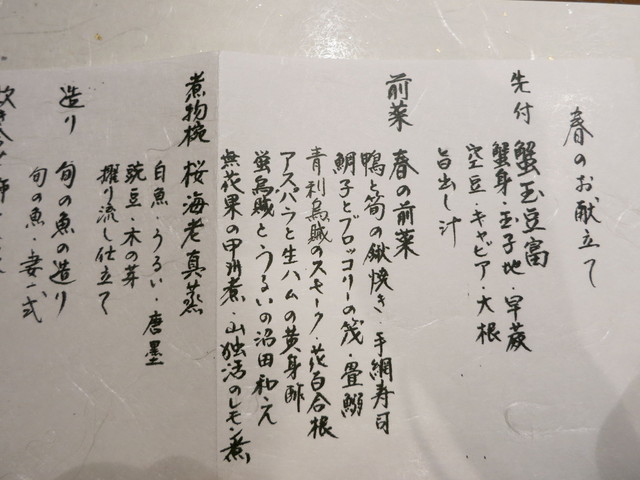 春のお献立て
先付 蟹玉豆富
蟹身・玉子地・早蕨
空豆・キャビア・大根
旨出し汁
前菜 春の前菜
鴨と筍の鍬焼き・手綱寿司
鯛子とブロッコリーの筏・畳鰯
青利烏賊のスモーク・花百合根
アスパラと生ハムの黄身酢
蛍烏賊とうるいの沼田和え
無花果の甲州煮・山独活のレモン煮
煮物椀 桜海老真蒸
白魚・うるい・唐墨
豌豆・木の芽
擢り流し仕立て
造り 旬の魚の造り
旬の魚・妻一式
炊き合せ